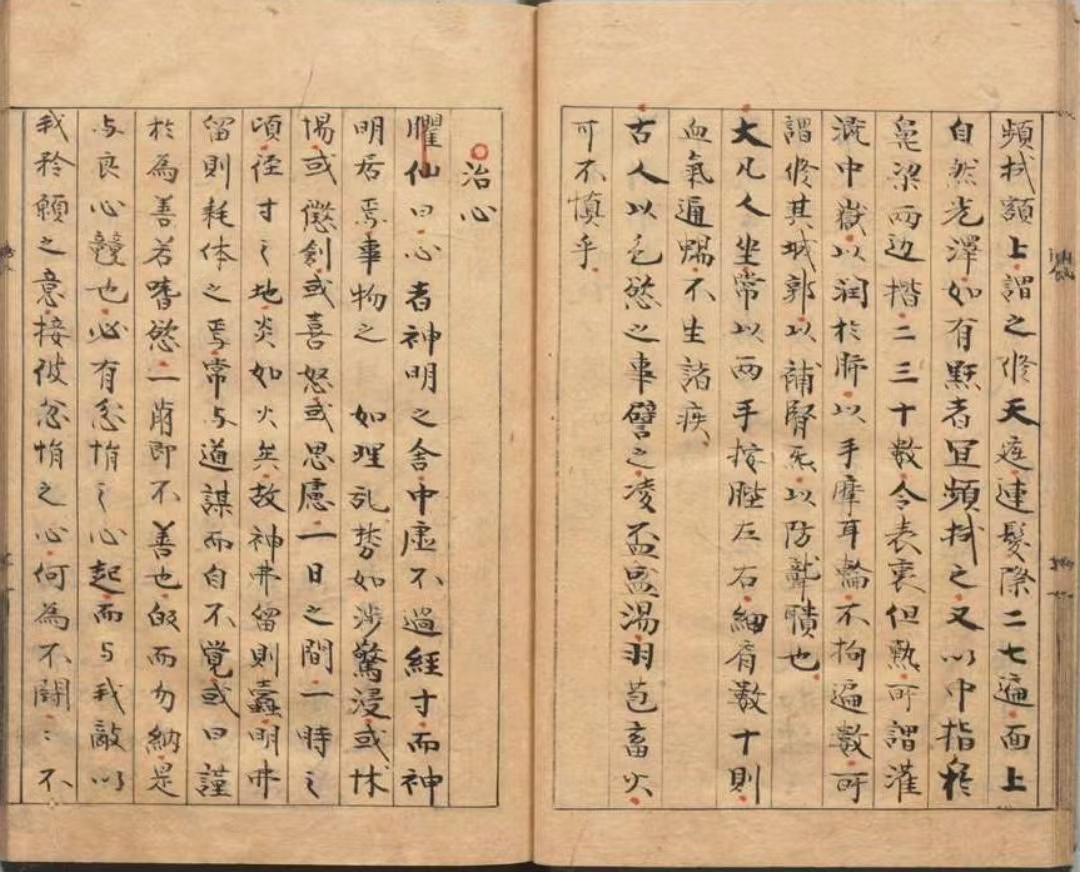 頻拭額上謂之修天庭連髮際二七遍面上
自然光澤如有黙者宜頻拭之又以中指於
鼻梁兩边揩二三十數令表裏但熱所謂灌
溉中嶽以润於肺以手摩耳輪不拘遍數所
謂修其城郭以補腎炁以防聾聵也
大凡人坐常以兩手按脞左右細肩數十則
血氣通暢不生諸疾
古人以色慾之事譬之凌盃盛湯羽苞畜火
可不慎乎
治心
臞仙曰心者神明之舍中虚不過經寸而神
明居焉事物之 如理乱棼如涉驚浸或怵
惕或懲創或喜怒或思慮一日之間一時之
頃径寸之地炎如火矣故神弗留則蠹明弗
留則耗体之焉常与道謀而自不覺或曰謹
於為善若嗜慾一萌即不善也的而勿納是
与良心競也必有忿悁之心起而与我敵以
我矜願之意接彼忿悁之心何為不鬪〻不